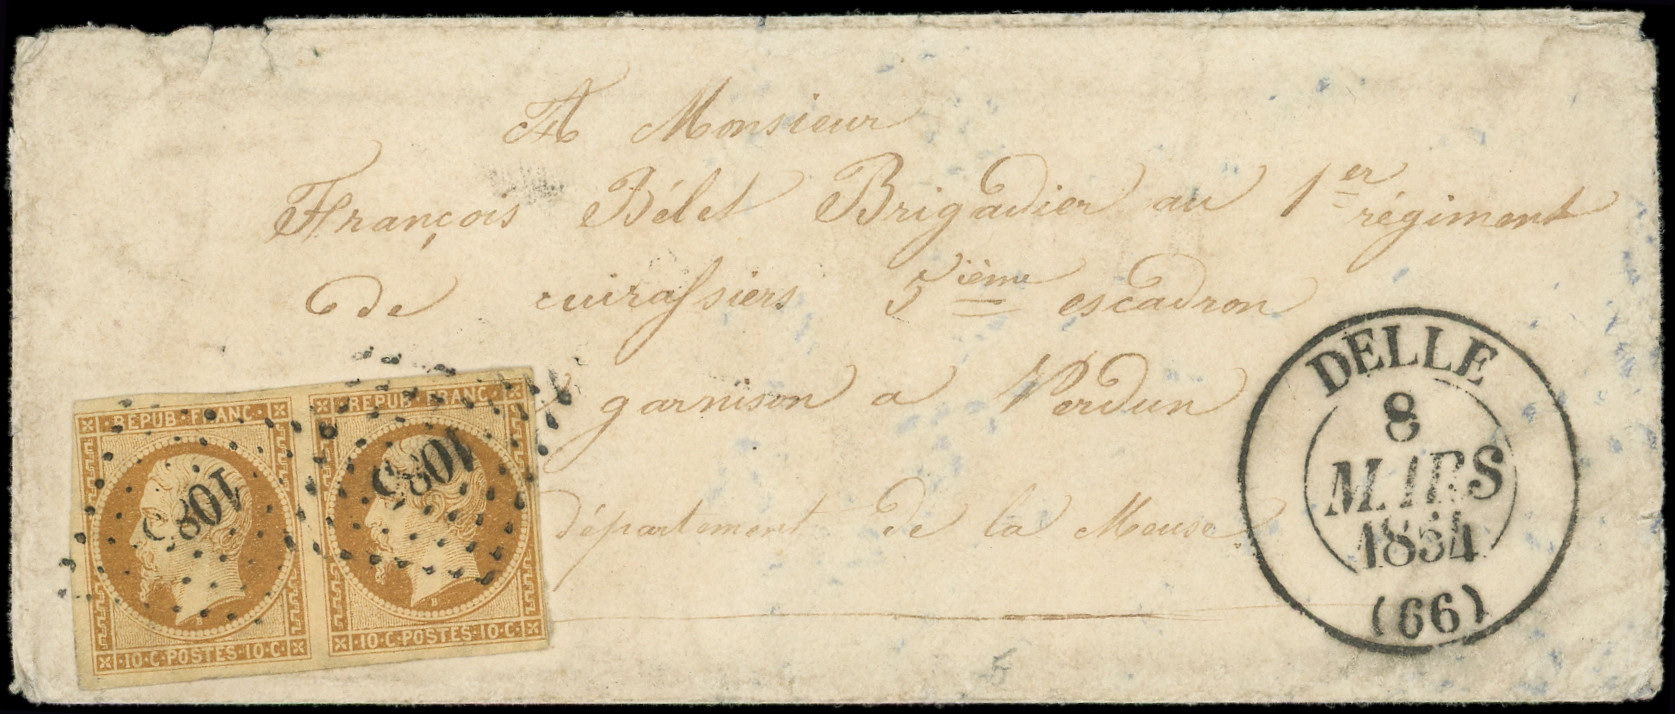 A Monsieur
François Bélet Brigadier au 1er régiment
de cuirassiers 5ième escadron
garnison a Verdun
département de la Meuse
REPUB·FRANC·
1085
·10·C·POSTES·10·C·
REPUB·FRANC·
1085
B
·10·C·POSTES·10·C·
DELLE
8
MARS
1854
(66)
5